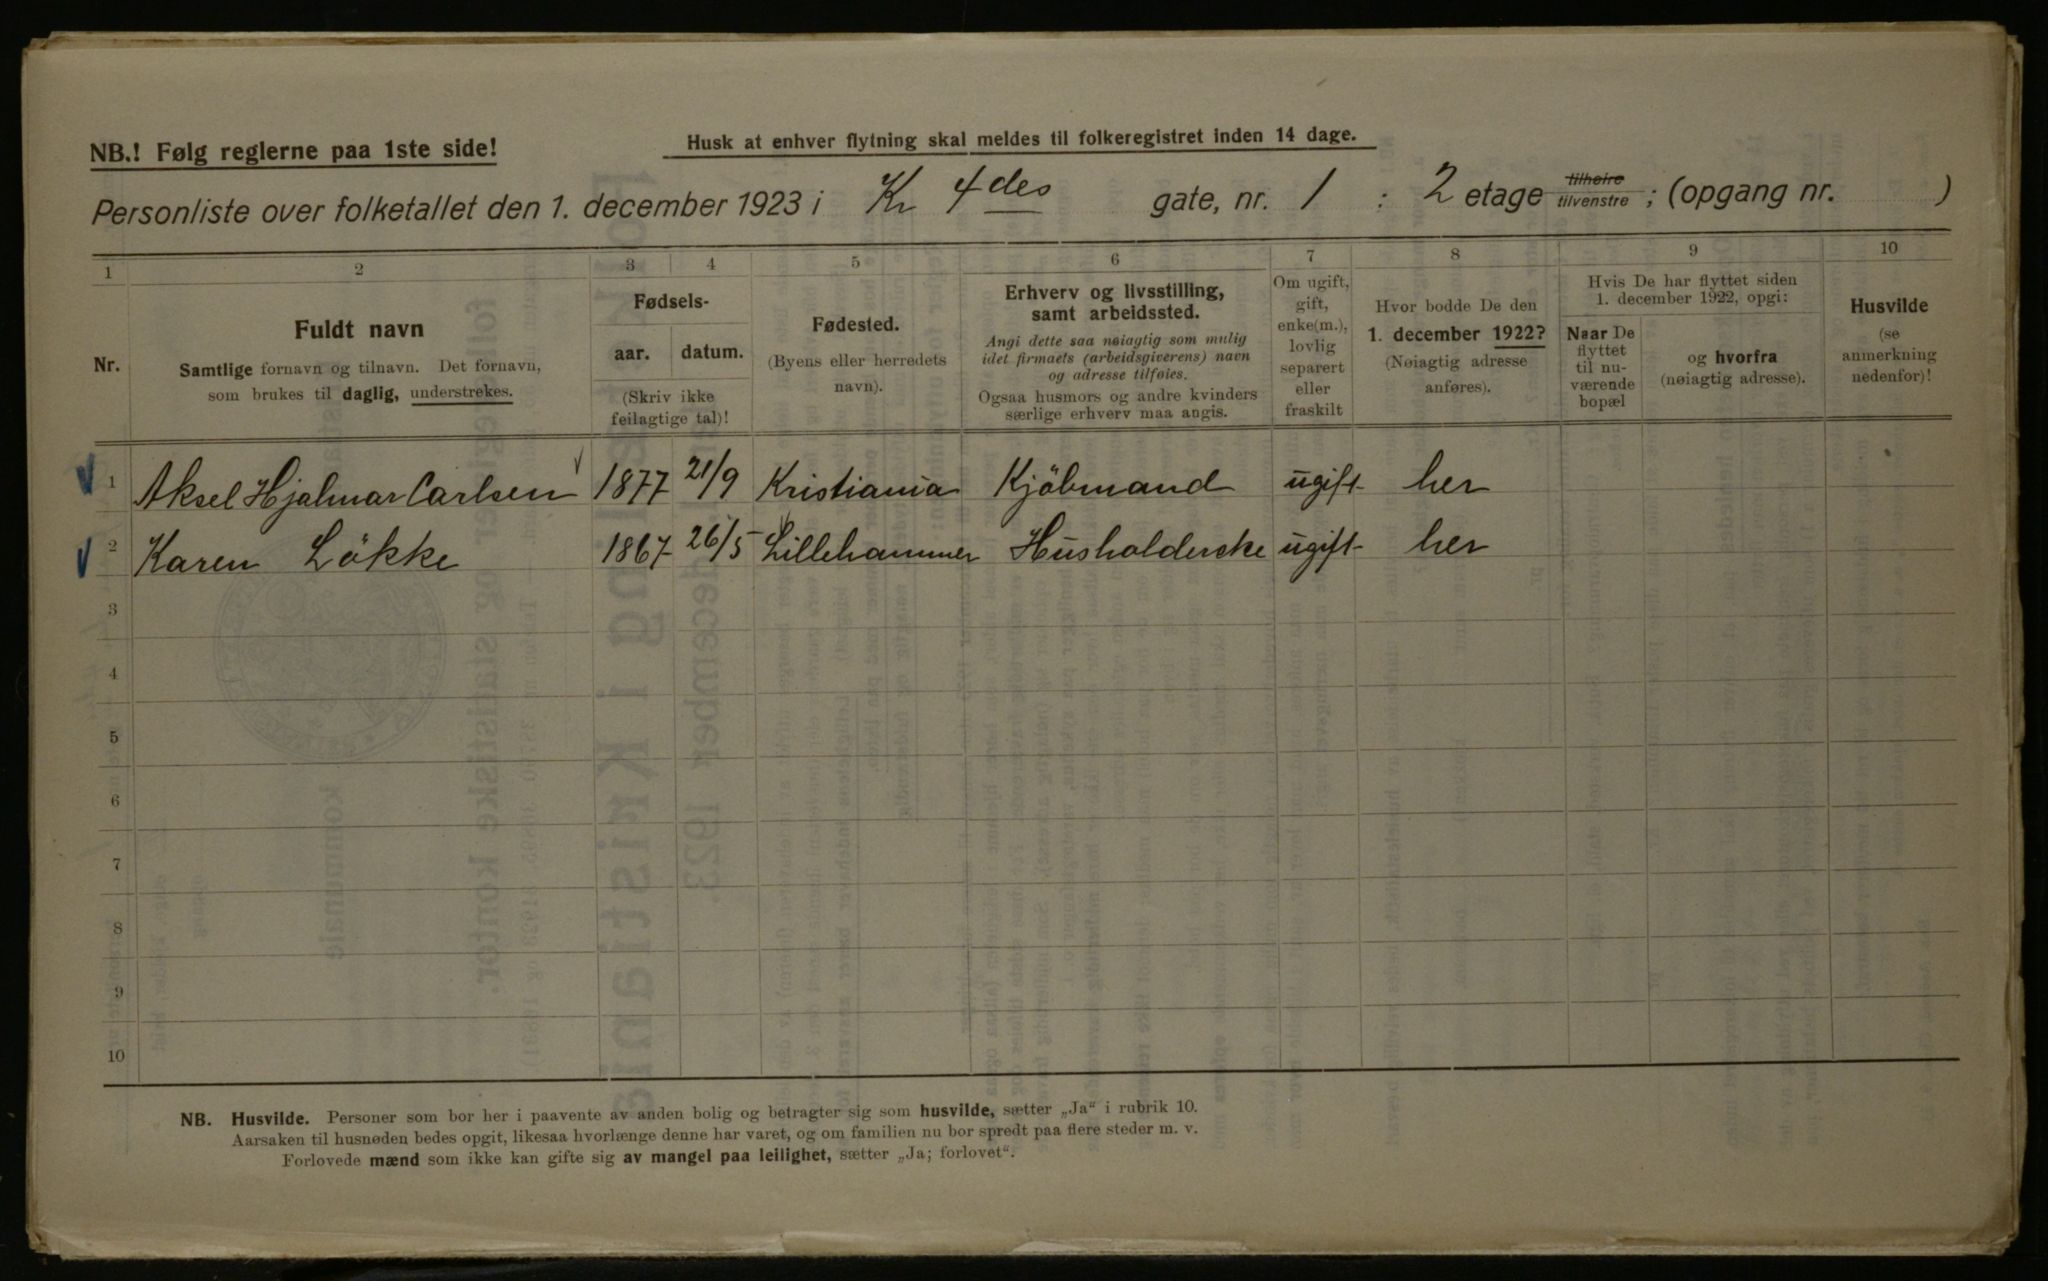 NB.! Følg reglerne paa 1ste side!
Husk at enhver flytning skal meldes til folkeregistret inden 14 dage.
Personliste over folketallet den 1. december 1923 i Kr 4des gate, nr. 1 : 2 etage tilhøire tilvenstre ; (opgang nr. )
1 2 3 4 5 6 7 8 9 10
Nr.
Fuldt navn
Samtlige fornavn og tilnavn. Det fornavn,
som brukes til daglig, understrekes.
Fødsels-
aar. datum.
(Skriv ikke
feilagtige tal)!
Fødested.
(Byens eller herredets
navn).
Erhverv og livsstilling,
samt arbeidssted.
Angi dette saa nøiagtig som mulig
idet firmaets (arbeidsgiverens) navn
og adresse tilføies.
Ogsaa husmors og andre kvinders
særlige erhverv maa angis.
Om ugift,
gift,
enke(m.),
lovlig
separert
eller
fraskilt
Hvor bodde De den
1. december 1922?
(Nøiagtig adresse
anføres).
Hvis De har flyttet siden
1. december 1922, opgi:
Naar De
flyttet
til nu-
værende
bopæl
og hvorfra
(nøiagtig adresse).
Husvilde
(se
anmerkning
nedenfor)!
1 Aksel Hjalmar Carlsen 1877 21/9 Kristiania Kjöbmand ugift her
2 Karen Lökke 1867 26/5 Lillehammer Husholderske ugift her
3
4
5
6
7
8
9
10
NB. Husvilde. Personer som bor her i paavente av anden bolig og betragter sig som husvilde, sætter „Ja“ i rubrik 10.
Aarsaken til husnøden bedes opgit, likesaa hvorlænge denne har varet, og om familien nu bor spredt paa flere steder m. v.
Forlovede mænd som ikke kan gifte sig av mangel paa leilighet, sætter „Ja; forlovet“.